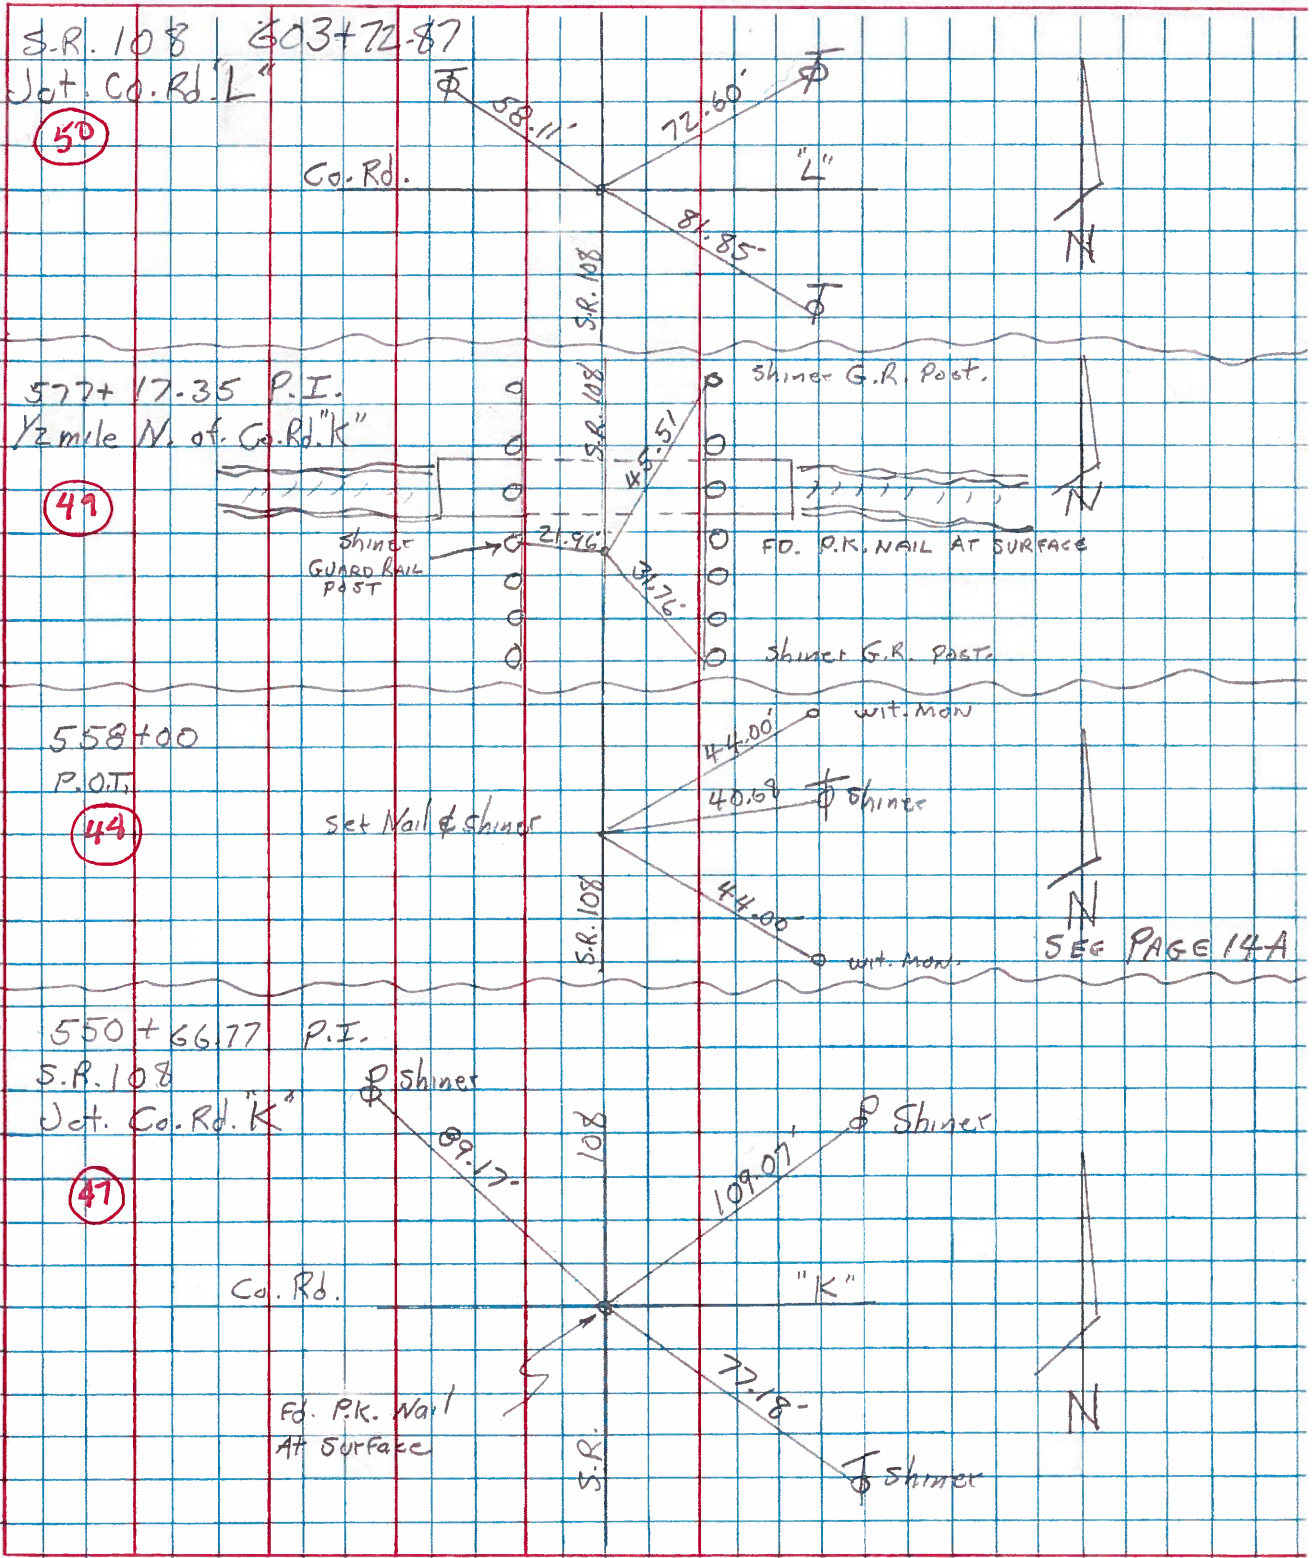 S.R. 108 603+72.87
Jct. Co. Rd. "L"
50
58.11'
72.60'
Co. Rd.
"L"
81.85'
S.R. 108
N
577+17.35 P.I.
1/2 mile N. of. Co. Rd. "K"
49
S.R. 108
Shiner G.R. Post.
45.51
Shiner
GUARD RAIL
POST
21.96'
31.76'
FD. P.K. NAIL AT SURFACE
Shiner G.R. Post.
N
558+00
P.O.T.
48
Set Nail & Shiner
44.00'
wit. Mon
40.68
Shiner
S.R. 108
44.00
wit. Mon.
N
SEE PAGE 14-A
550+66.77 P.I.
S.R. 108
Jct. Co. Rd. "K"
47
Shiner
89.17'
108
109.07'
Shiner
Co. Rd.
"K"
Fd. P.K. Nail
At Surface
S.R.
77.18'
Shiner
N